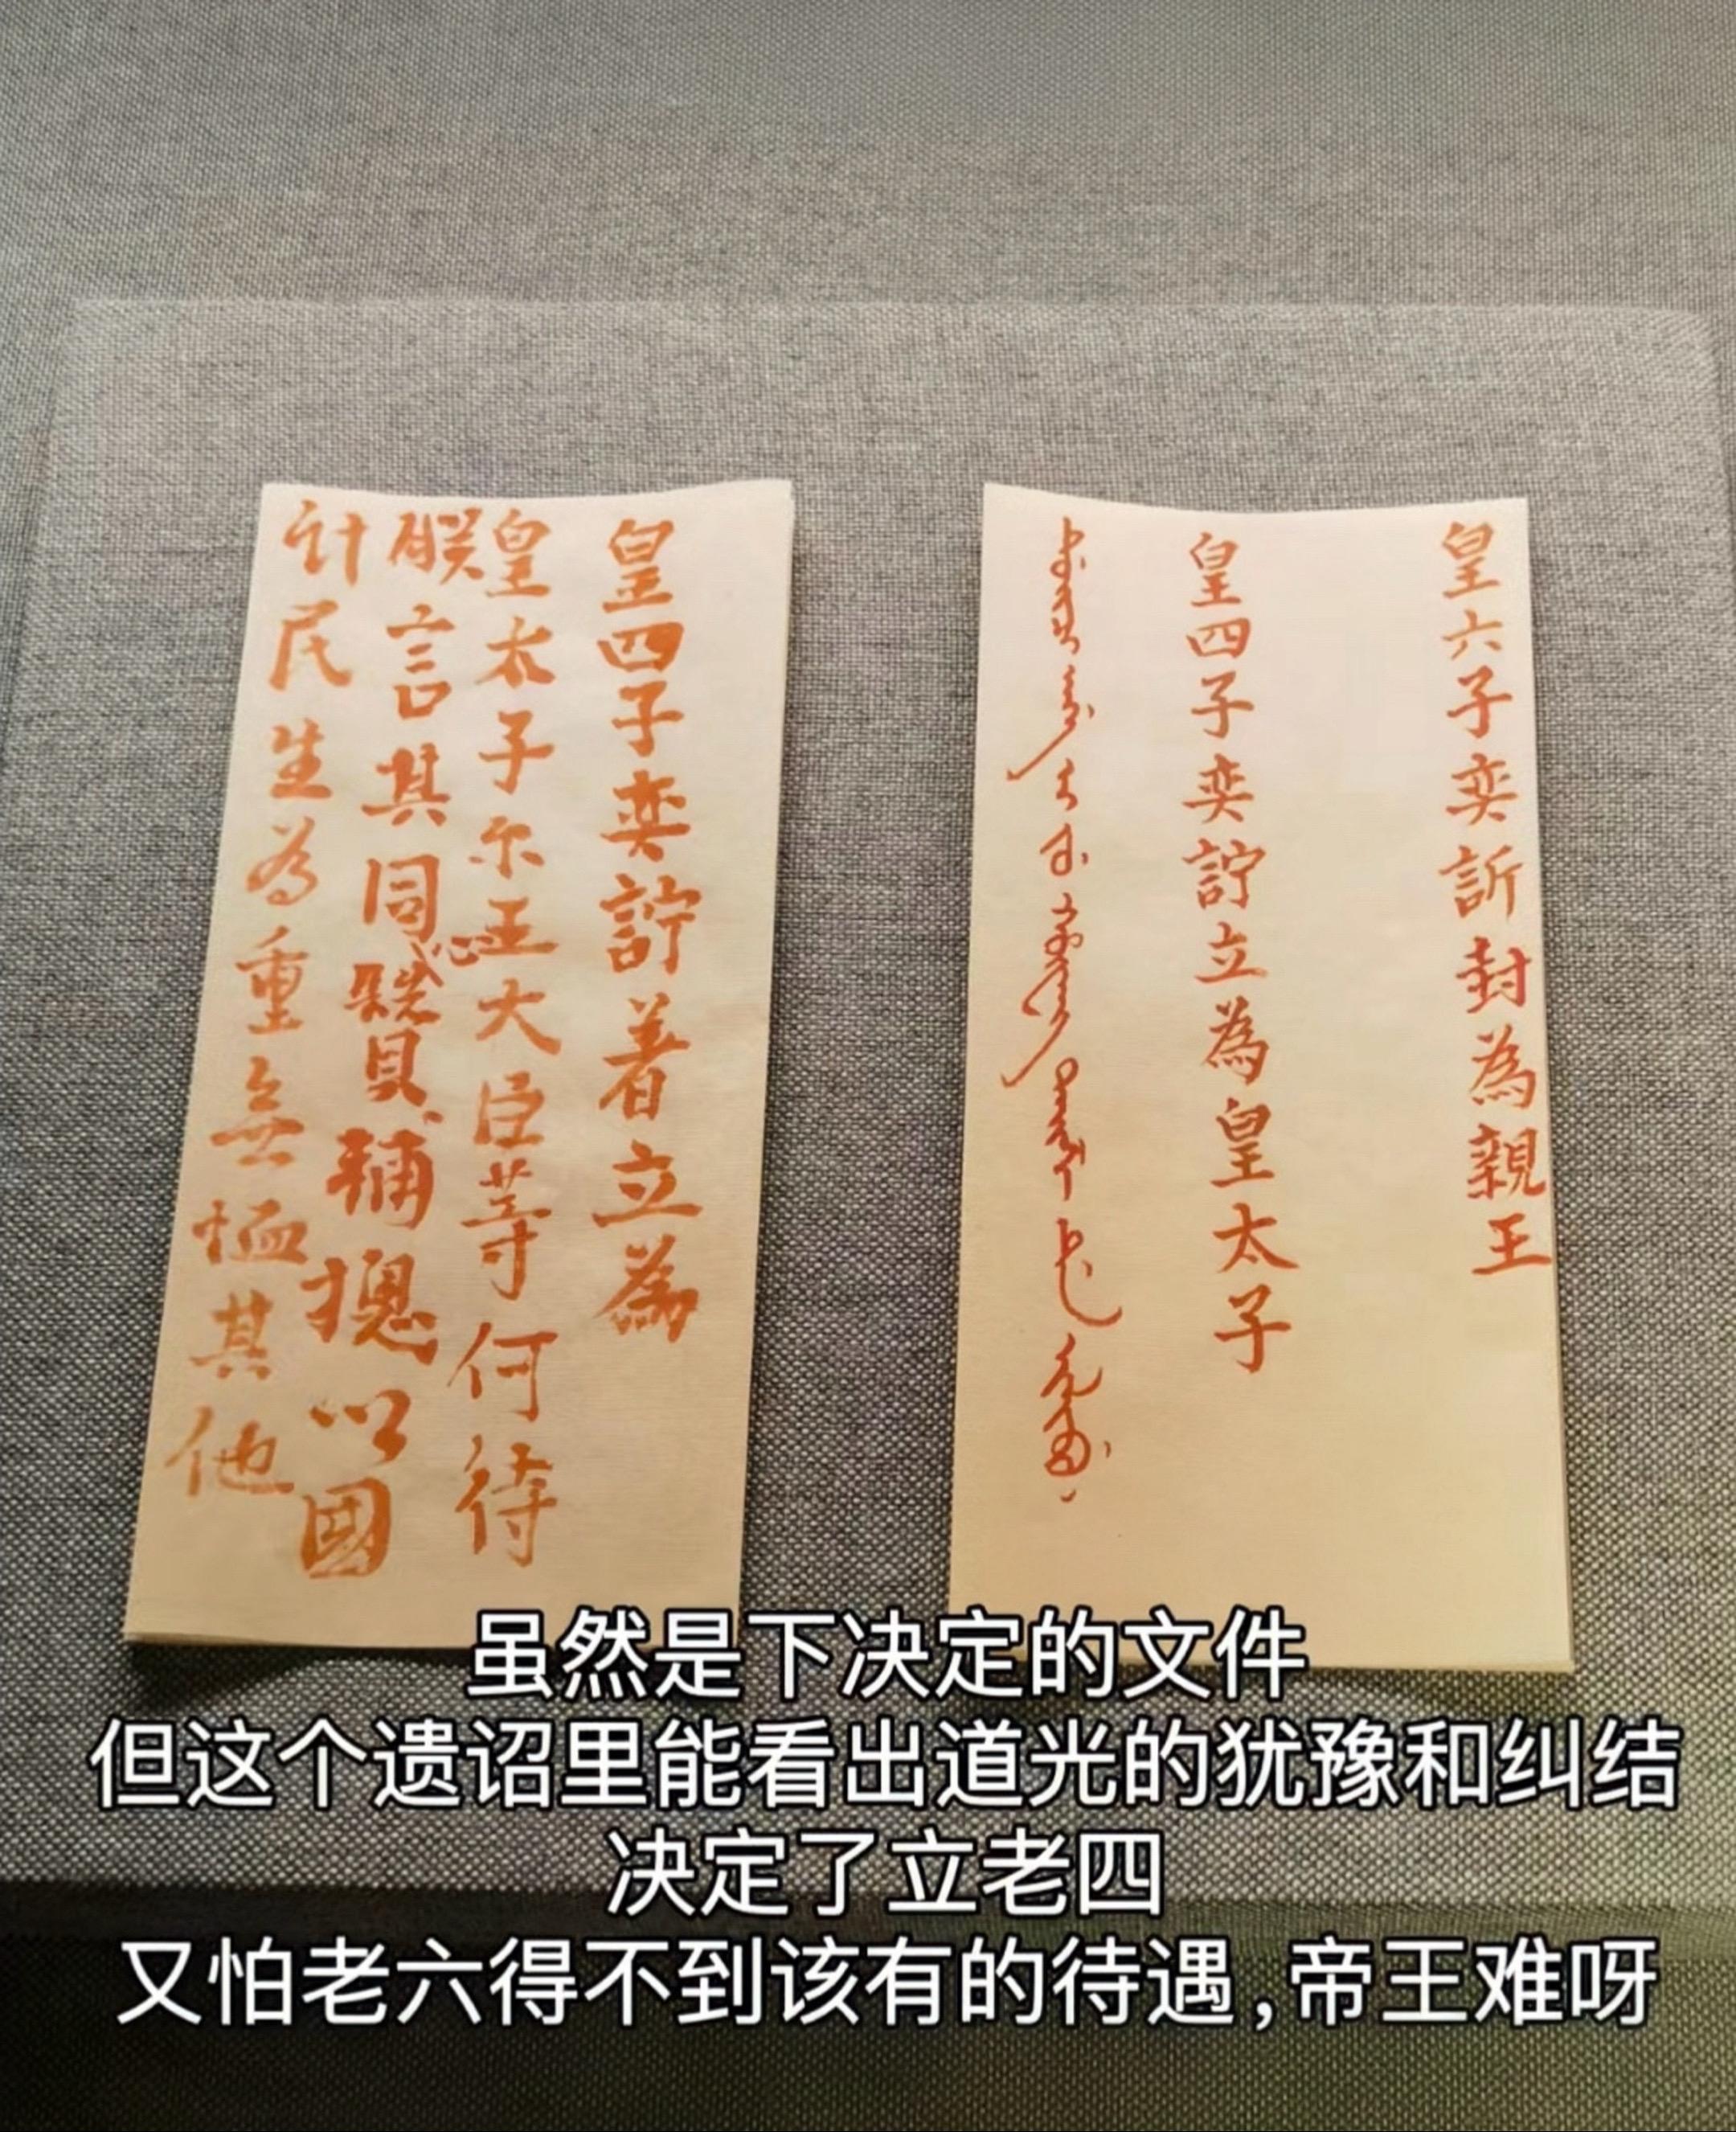 皇六子奕訢封為親王
皇四子奕詝立為皇太子
皇四子奕詝着立為
皇太子尔王大臣等何待
朕言其同心贊輔摠以國
計民生為重無恤其他
虽然是下决定的文件
但这个遗诏里能看出道光的犹豫和纠结
决定了立老四
又怕老六得不到该有的待遇,帝王难呀